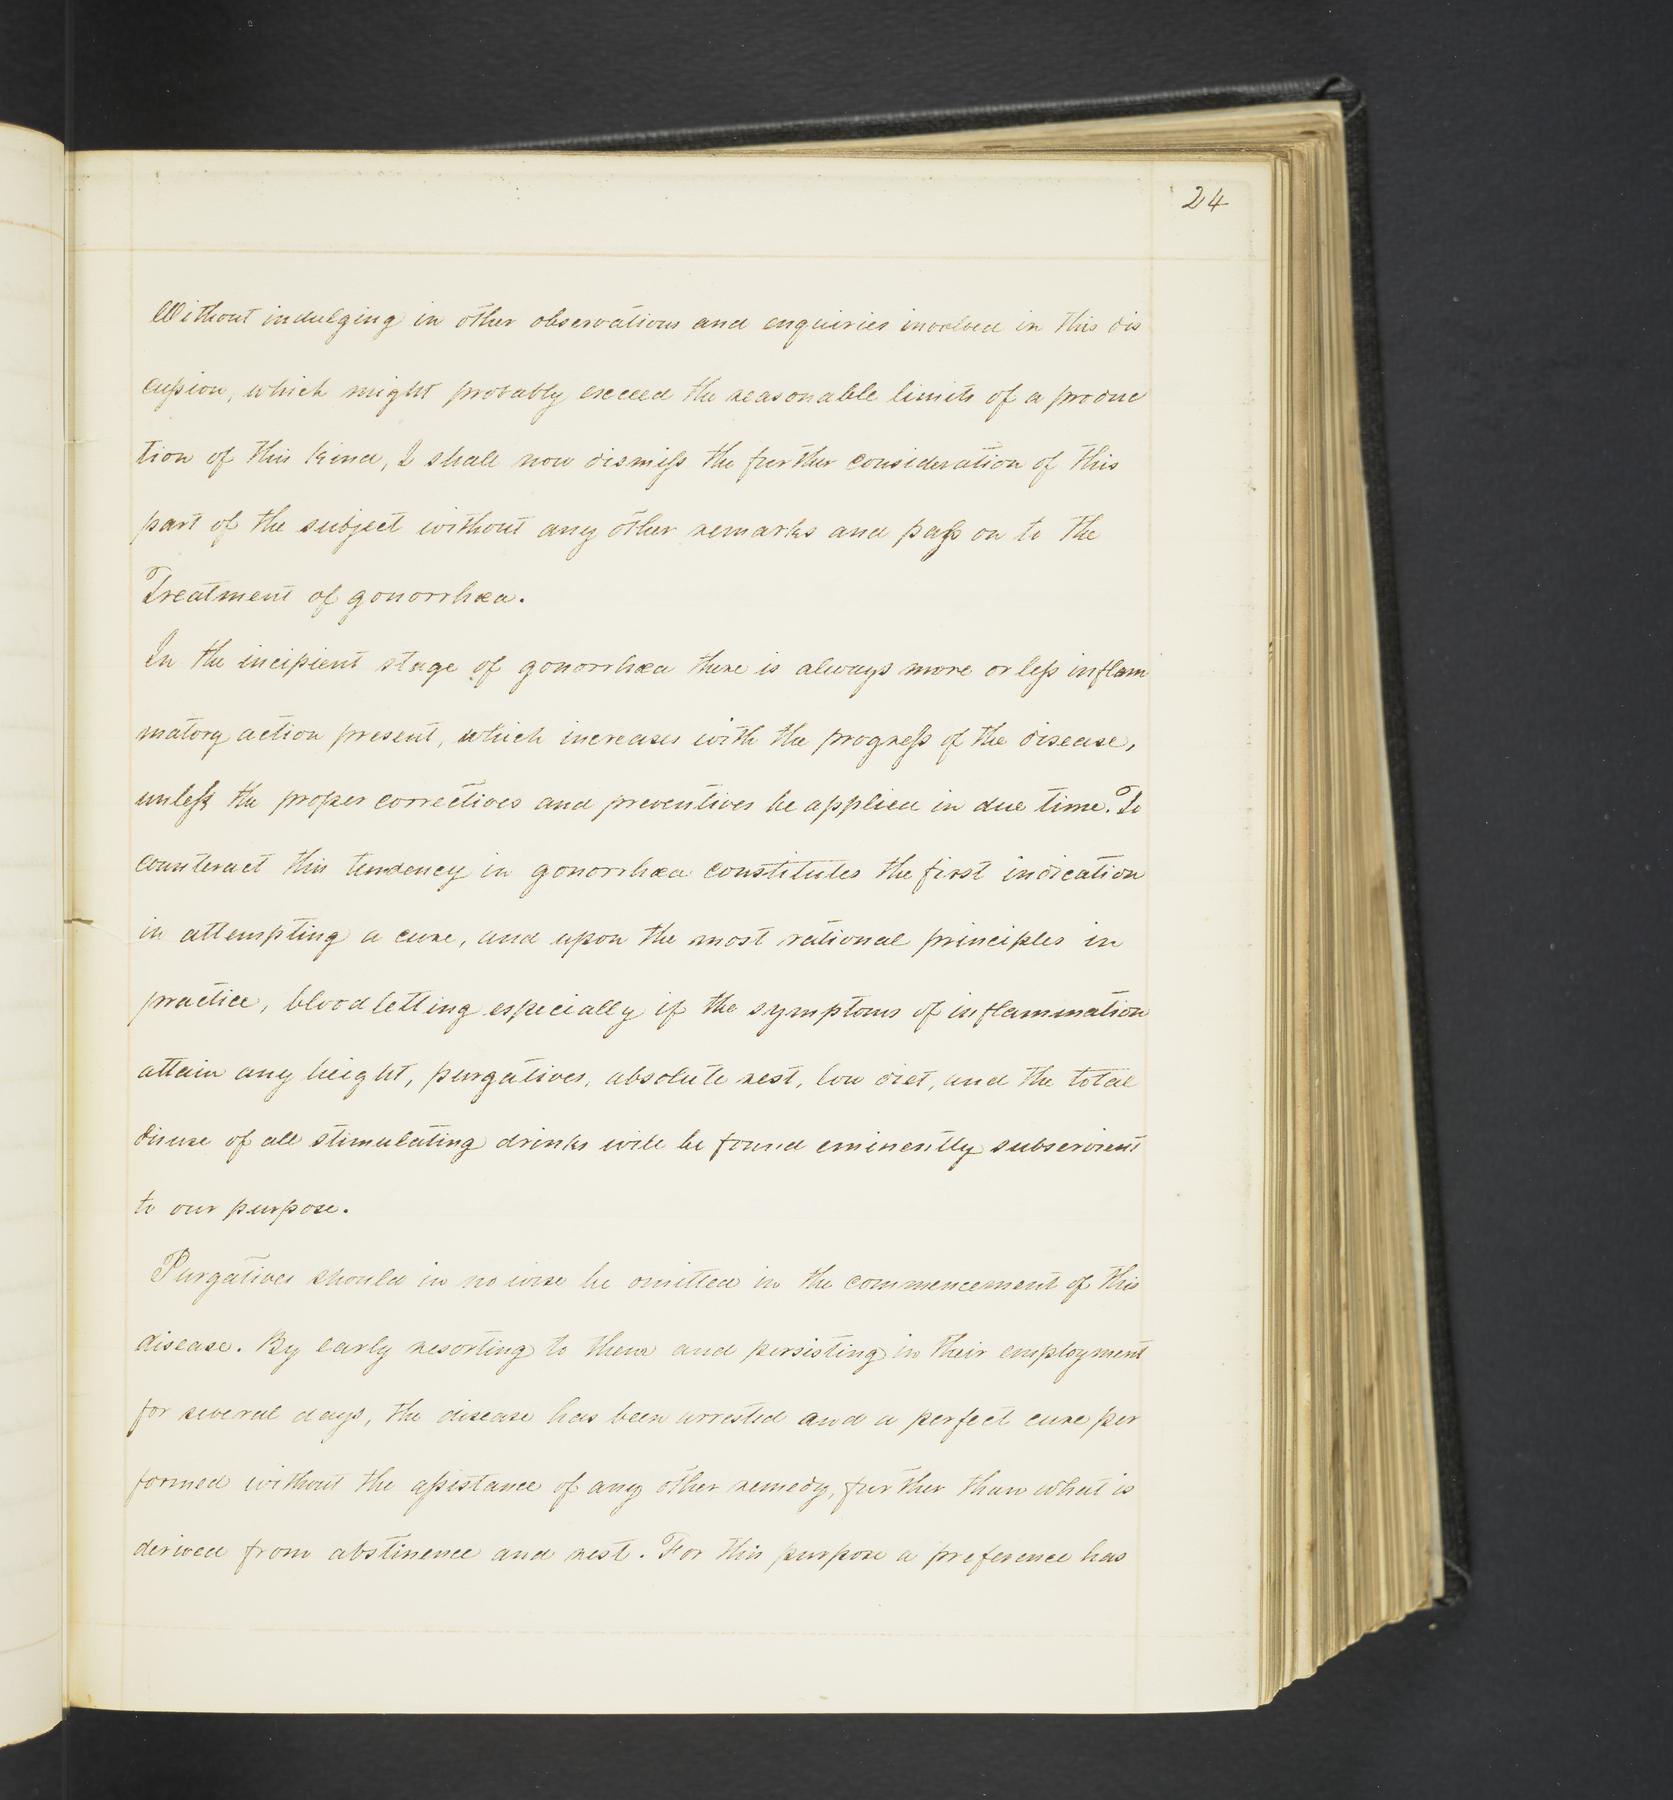 24
Without indulging in other observations and enquiries involved in this dis
cussion, which might probably exceed the reasonable limits of a produc
tion of this kind, I shall now dismiss the further consideration of this
part of the subject without any other remarks and pass on to the
Treatment of gonorrhœa.
In the incipient stage of gonorrhœa there is always more or less inflam
matory action present, which increases with the progress of the disease,
unless the proper correctives and preventives be applied in due time. To
counteract this tendency in gonorrhœa constitutes the first indication
in attempting a cure, and upon the most rational principles in
practice, bloodletting especially if the symptoms of inflammation
attain any height, purgatives, absolute rest, low diet, and the total
disuse of all stimulating drinks will be found eminently subservient
to our purpose.
Purgatives should in no wise be omitted in the commencement of this
disease. By early resorting to them and persisting in their employment
for several days, the disease has been arrested and a perfect cure per
formed without the assistance of any other remedy, further than what is
derived from abstinence and rest. For this purpose a preference has